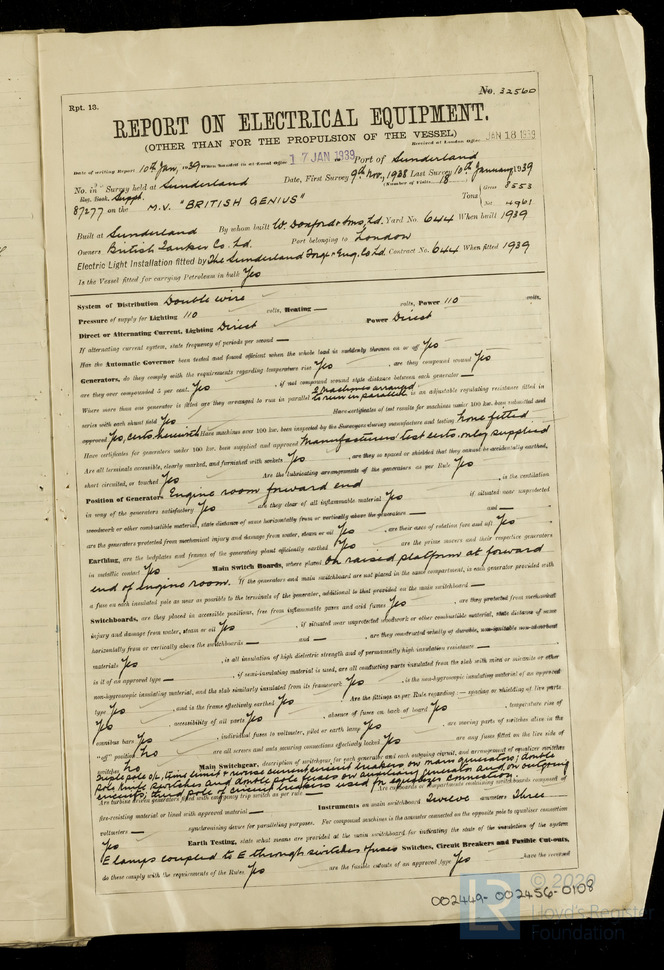 No. 32560
Rpt. 13.
REPORT ON ELECTRICAL EQUIPMENT.
(OTHER THAN FOR THE PROPULSION OF THE VESSEL)
Received at London Office JAN 18 1939
Date of writing Report 10th Jan, 1939 When handed in at Local Office 17 JAN 1939 Port of Sunderland
No. in Survey held at Sunderland Date, First Survey 9th Nov, 1938 Last Survey 10th January, 1939
Reg. Book. Suppt. (Number of Visits 18
87277 on the M.V. "BRITISH GENIUS" Tons Gross 8553 Net 4961
Built at Sunderland By whom built W. Doxford & Sons, Ld. Yard No. 644 When built 1939
Owners British Tanker Co. Ld. Port belonging to London
Electric Light Installation fitted by The Sunderland Forge & Eng. Co Ld. Contract No. 644 When fitted 1939
Is the Vessel fitted for carrying Petroleum in bulk Yes
System of Distribution Double wire
Pressure of supply for Lighting 110 volts, Heating — volts, Power 110 volts.
Direct or Alternating Current, Lighting Direct Power Direct
If alternating current system, state frequency of periods per second —
Has the Automatic Governor been tested and found efficient when the whole load is suddenly thrown on or off Yes
Generators, do they comply with the requirements regarding temperature rise Yes, are they compound wound Yes
are they over compounded 5 per cent. Yes, if not compound wound state distance between each generator —
Where more than one generator is fitted are they arranged to run in parallel 2 machines arranged to run in parallel, is an adjustable regulating resistance fitted in
series with each shunt field Yes Have certificates of test results for machines under 100 kw. been submitted and
approved Yes, certs. herewith Have machines over 100 kw. been inspected by the Surveyors during manufacture and testing None fitted
Have certificates for generators under 100 kw. been supplied and approved Manufacturers test certs. only supplied
Are all terminals accessible, clearly marked, and furnished with sockets Yes, are they so spaced or shielded that they cannot be accidentally earthed,
short circuited, or touched Yes Are the lubricating arrangements of the generators as per Rule Yes
Position of Generators Engine room forward end, is the ventilation
in way of the generators satisfactory Yes are they clear of all inflammable material Yes if situated near unprotected
woodwork or other combustible material, state distance of same horizontally from or vertically above the generators — and —,
are the generators protected from mechanical injury and damage from water, steam or oil Yes, are their axes of rotation fore and aft Yes
Earthing, are the bedplates and frames of the generating plant efficiently earthed Yes are the prime movers and their respective generators
in metallic contact Yes Main Switch Boards, where placed On raised platform at forward
end of engine room. If the generators and main switchboard are not placed in the same compartment, is each generator provided with
a fuse on each insulated pole as near as possible to the terminals of the generator, additional to that provided on the main switchboard —
Switchboards, are they placed in accessible positions, free from inflammable gases and acid fumes Yes, are they protected from mechanical
injury and damage from water, steam or oil Yes, if situated near unprotected woodwork or other combustible material, state distance of same
horizontally from or vertically above the switchboards — and —, are they constructed wholly of durable, non-ignitable non-absorbent
materials Yes, is all insulation of high dielectric strength and of permanently high insulation resistance —
is it of an approved type —, if semi-insulating material is used, are all conducting parts insulated from the slab with mica or micanite or other
non-hygroscopic insulating material, and the slab similarly insulated from its framework Yes, is the non-hygroscopic insulating material of an approved
type Yes, and is the frame effectively earthed Yes Are the fittings as per Rule regarding:— spacing or shielding of live parts
Yes, accessibility of all parts Yes, absence of fuses on back of board Yes, temperature rise of
omnibus bars Yes, individual fuses to voltmeter, pilot or earth lamp Yes, are moving parts of switches alive in the
"off" position No are all screws and nuts securing connections effectively locked Yes are any fuses fitted on the live side of
switches No Main Switchgear, description of switchgear for each generator and each outgoing circuit, and arrangement of equaliser switches
Triple pole o/l, time limit & reverse current circuit breakers on main generators; double
pole knife switches and double pole fuses on auxiliary generator and on outgoing
circuits, third pole of circuit breakers used for equaliser connection.
Are turbine driven generators fitted with emergency trip switch as per rule — Are cupboards or compartments containing switchboards composed of
fire-resisting material or lined with approved material — Instruments on main switchboard Twelve ammeters Three
voltmeters — synchronising device for paralleling purposes. For compound machines is the ammeter connected on the opposite pole to equaliser connection
Yes Earth Testing, state what means are provided at the main switchboard for indicating the state of the insulation of the system
E lamps coupled to E through switches & fuses Switches, Circuit Breakers and Fusible Cut-outs,
do these comply with the requirements of the Rules Yes, are the fusible cutouts of an approved type Yes, have the reversed
002449-002456-0108
LR
© 2020
Lloyd's Register
Foundation